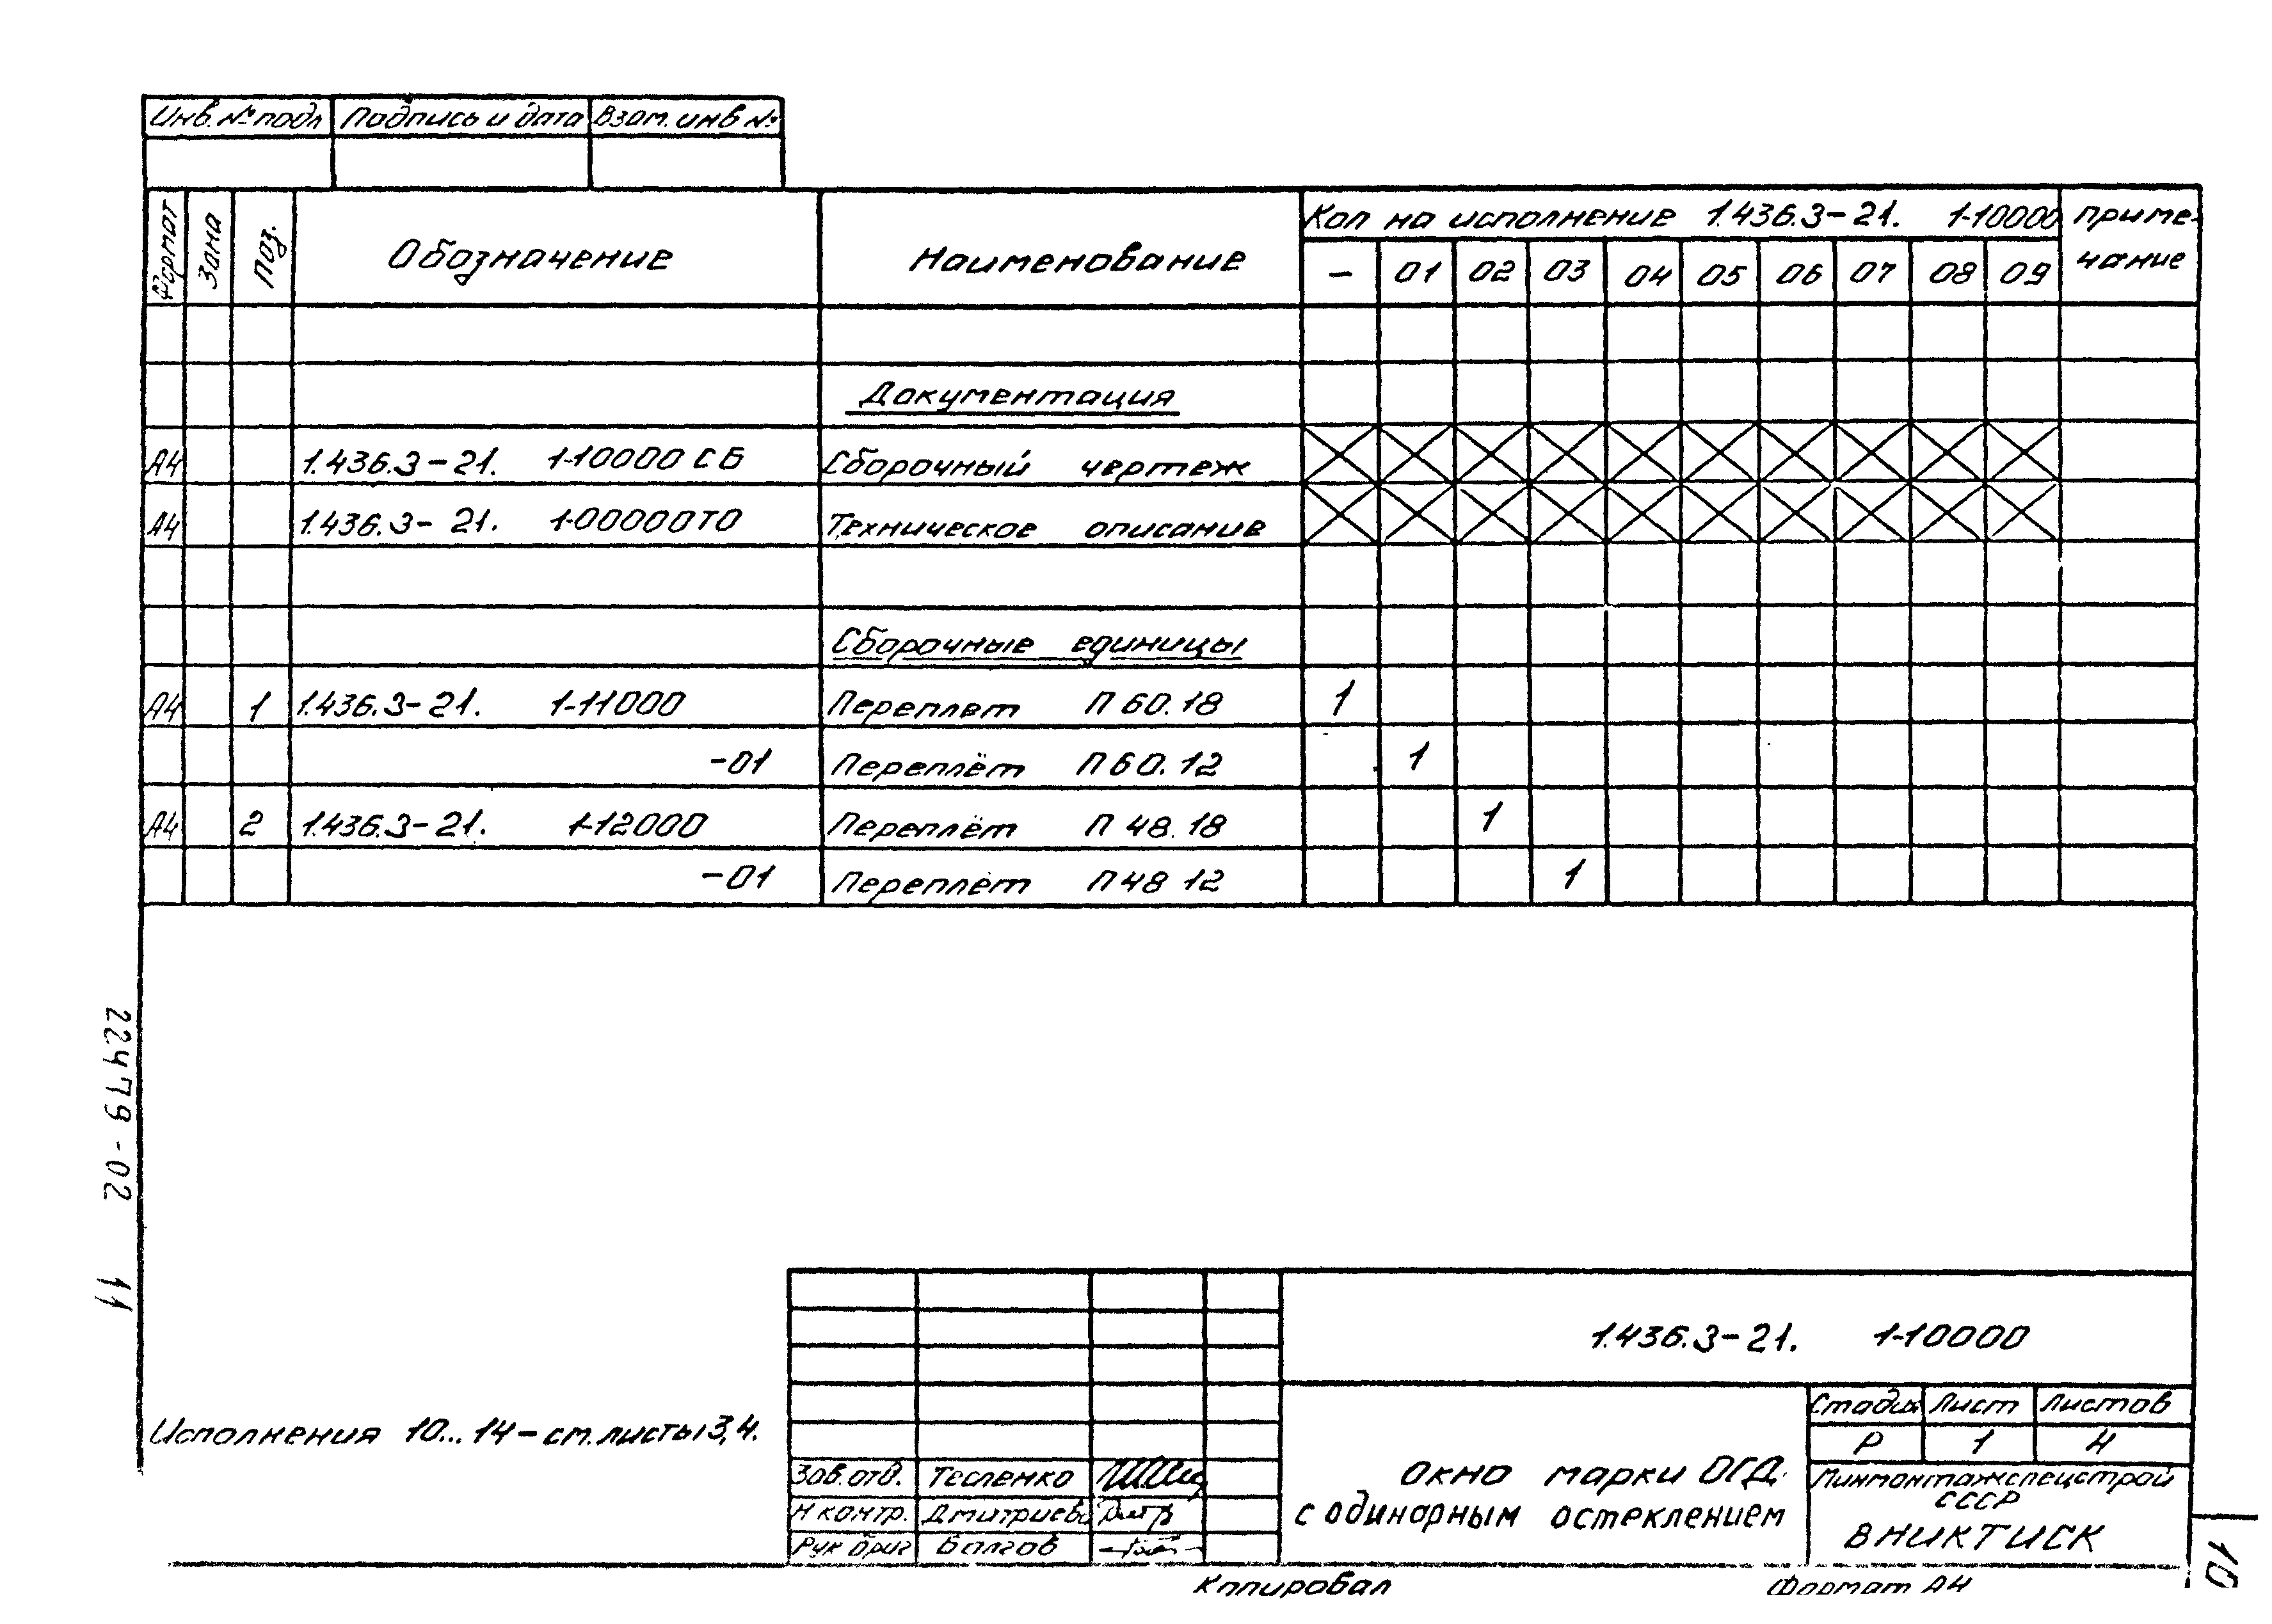 Инв. № подл Подпись и дата Взам. инв №
Формат Зона Поз. Обозначение Наименование Кол на исполнение 1.436.3-21. 1-10000 Приме-
чание
- 01 02 03 04 05 06 07 08 09
Документация
А4 1.436.3-21. 1-10000 СБ Сборочный чертеж
А4 1.436.3-21. 1-00000ТО Техническое описание
Сборочные единицы
А4 1 1.436.3-21. 1-11000 Переплет П 60.18 1
-01 Переплёт П 60.12 1
А4 2 1.436.3-21. 1-12000 Переплёт П 48.18 1
-01 Переплёт П 48 12 1
22479-02 11
Исполнения 10...14 - см. листы 3,4.
1.436.3-21. 1-10000
Стадия Лист Листов
Р 1 4
Окно марки ОГД
с одинарным остеклением
Минмонтажспецстрой
СССР
ВНИКТИСК
Зав. отд. Тесленко
Н контр. Дмитриева
Рук бриг Балгов
Копировал Формат А4
10